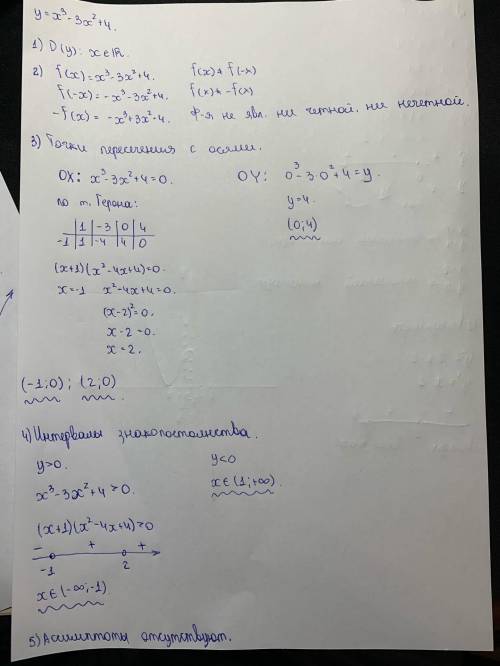 y=x³-3x²+4.
1) D(y): x∈ℝ.
2) f(x)=x³-3x²+4. f(x)≠f(-x)
f(-x)=-x³-3x²+4. f(x)≠-f(x)
-f(x)=-x³+3x²-4. Ф-я не явл. ни четной, ни нечетной.
3) Точки пересечения с осями.
OX: x³-3x²+4=0. OY: 0³-3·0²+4=y.
по т. Герона: y=4.
1 -3 0 4 (0;4)
-1 1 -4 4 0
(x+1)(x²-4x+4)=0.
x=-1 x²-4x+4=0.
(x-2)²=0.
x-2=0.
x=2.
(-1;0); (2;0)
4) Интервалы знакопостоянства.
y>0. y<0
x³-3x²+4>0. x∈(1;+∞).
(x+1)(x²-4x+4)>0
- + +
-1 2
x∈(-∞;-1)
5) Асимптоты отсутствуют.